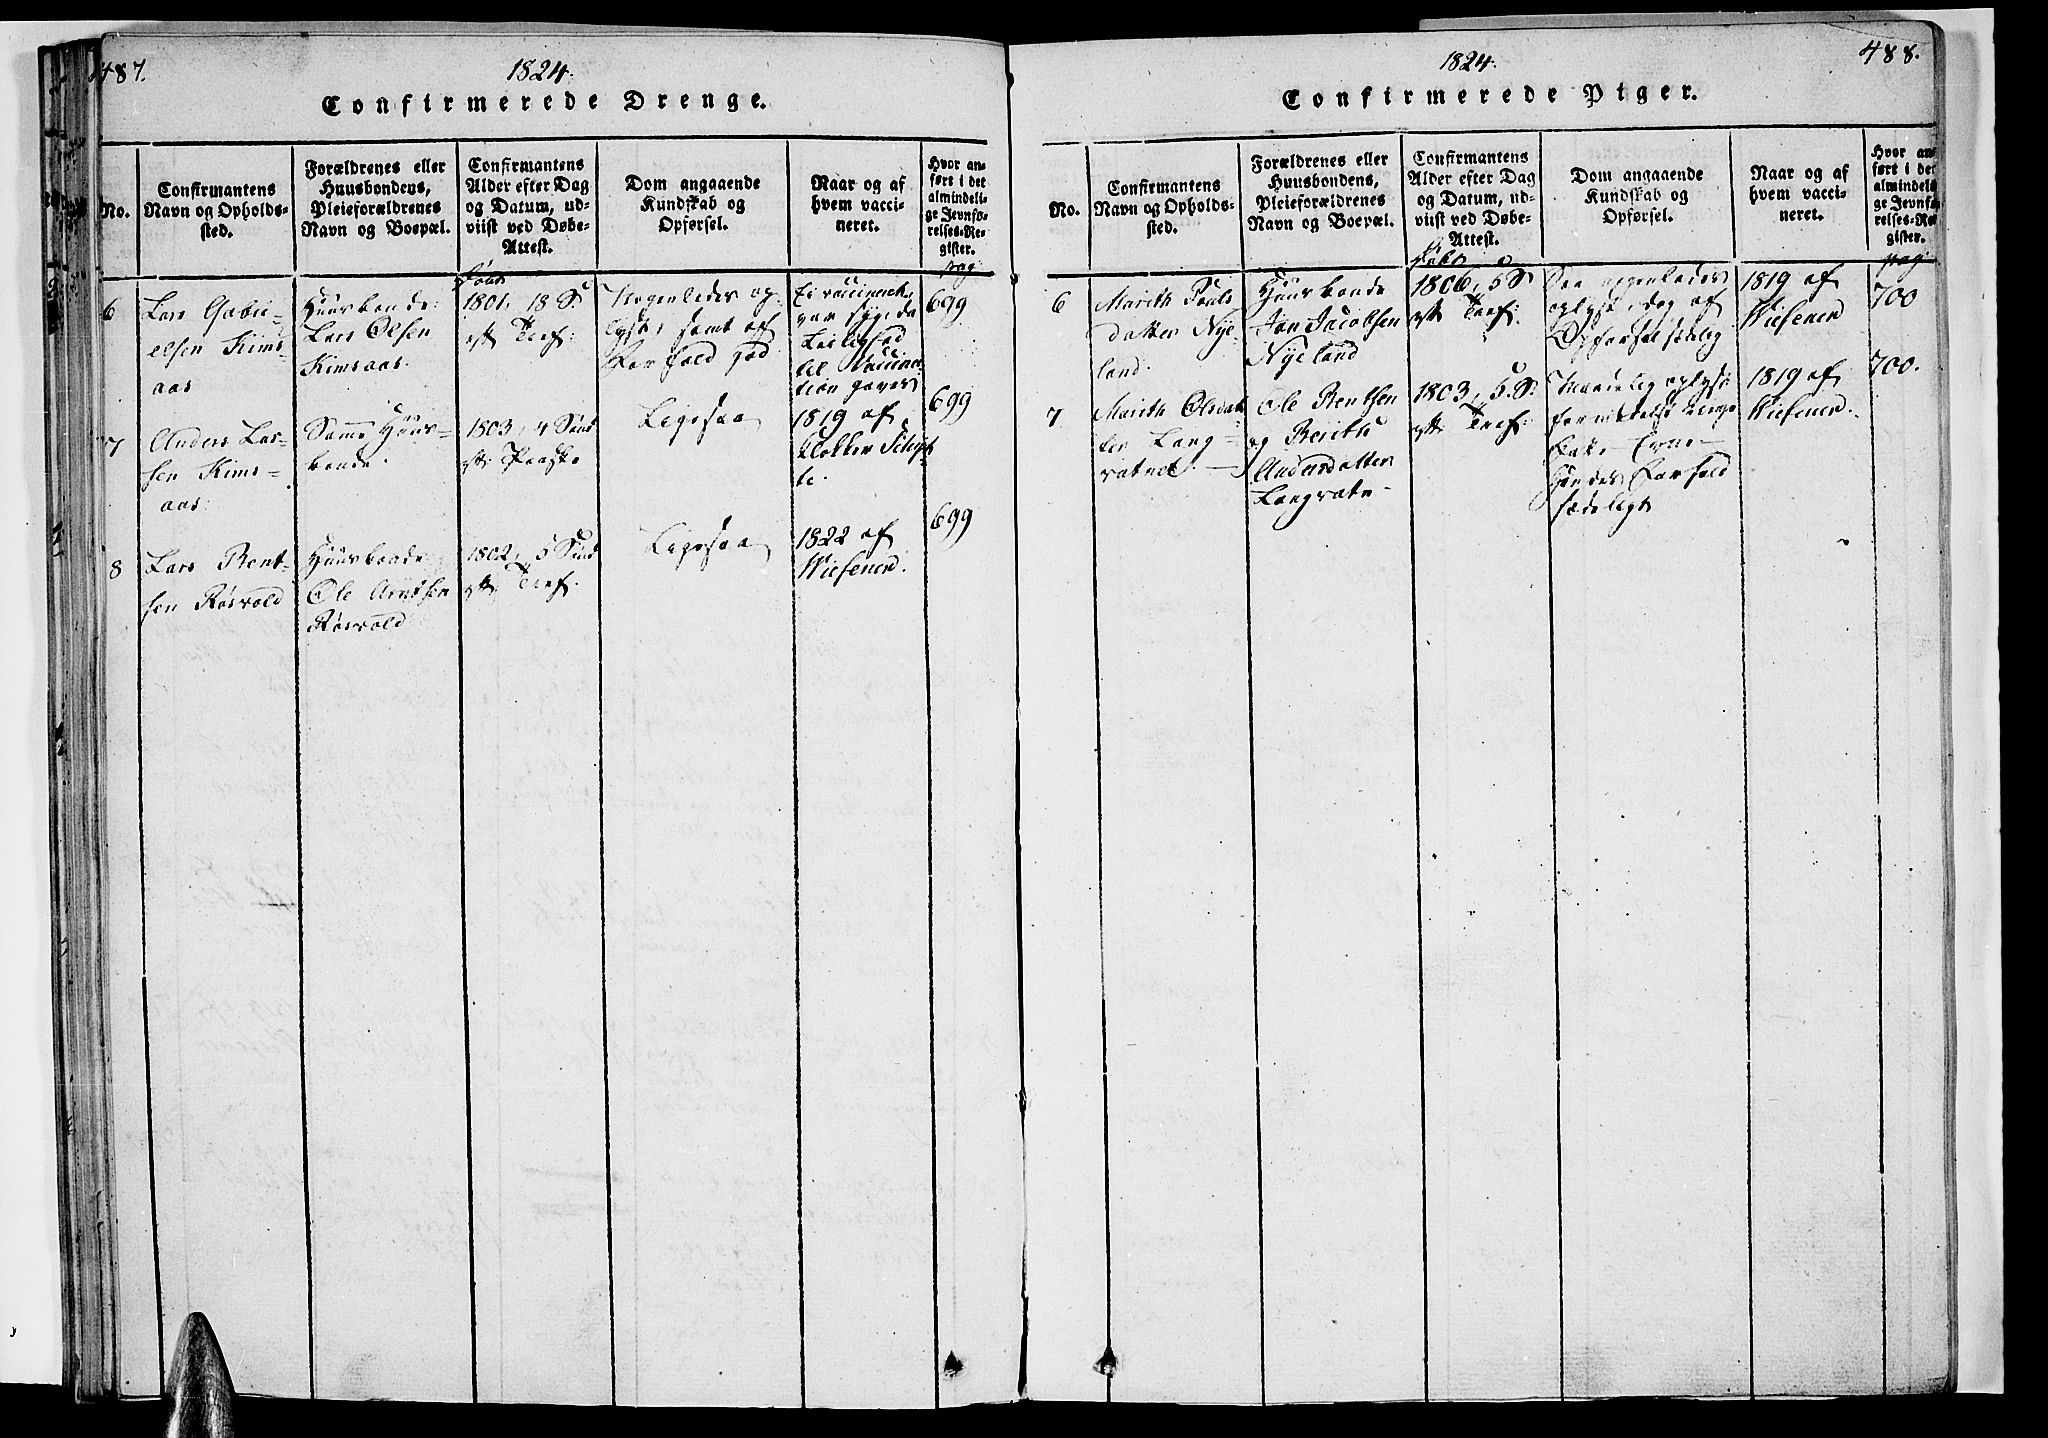 487.
1824.
Confirmerede Drenge.
No.
Confirmantens
Navn og Opholds-
sted.
Forældrenes eller
Huusbondens,
Pleieforældrenes
Navn og Boepæl.
Confirmantens
Alder efter Dag
og Datum, ud-
viist ved Døbe-
Attest.
Dom angaaende
Kundskab og
Opførsel.
Naar og af
hvem vacci-
neret.
Hvor an-
ført i det
almindeli-
ge Jevnfø-
relses-Re-
gister.
pag:
6
Lars Gabri-
elsen Kims-
aas
Huusbonde:
Lars Olsen
Kimsaas.
døbt
1801, 18 S.
eft: Tref:
Nogenledes op-
lyst, samt af
Forhold god
Ei vaccineret,
var syg, da
Leilighed
til Vaccina-
tion gaves
699
7
Anders Lar-
sen Kims-
aas.
Samme Huus-
bonde.
1803, 4 Sønd
eft: Paaske
Ligesaa
1819 af
Klokker
te.
699
8
Lars Bent-
sen Røsvold
Huusbonde
Ole Arntsen
Røsvold
1802, 5 Sønd
eft: Tref:
Ligesaa
1822 af
Wisener.
699
488.
1824.
Confirmerede Piger.
No.
Confirmantens
Navn og Opholds-
sted.
Forældrenes eller
Huusbondens,
Pleieforældrenes
Navn og Boepæl.
Confirmantens
Alder efter Dag
og Datum, ud-
viist ved Døbe-
Attest.
Dom angaaende
Kundskab og
Opførsel.
Naar og af
hvem vacci-
neret.
Hvor an-
ført i det
almindeli-
ge Jevnfø-
relses-Re-
gister.
pag:
6
Marith Pouls
datter Nye-
land.
Huusbonde
Jon Jacobsen
Nyeland
døbt
1806, 5 S.
eft: Tref:
Saa nogenledes
oplyst, dog af
Opførsel sædelig
1819 af
Wisener
700
7
Marith Olsdat-
ter Lang-
vatnet.
Ole Bentsen
og Berith
Andersdatter
Langvatn-
1803, 5. S.
eft: Tref:
Maadelig oplyst
formedelst ringe
Evne-
Hendes Forhold
sædeligt
1819 af
Wisener.
700.